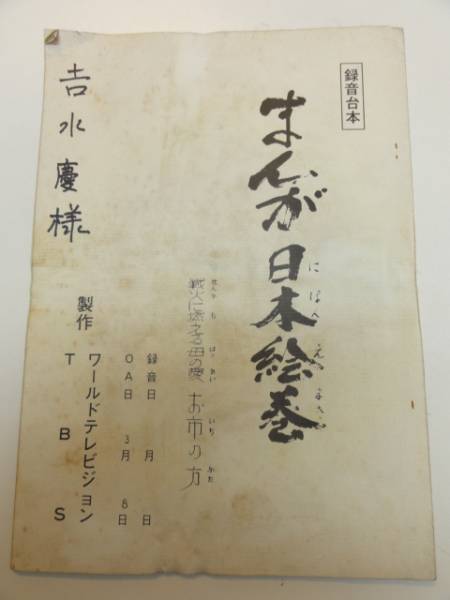 録音台本
まんが日本絵巻
にほんえまき
戦火に燃える母の愛 お市の方
せんか も はは あい いち かた
録音日 月 日
OA日 3月 8日
製作 ワールドテレビジョン
TBS
吉水慶様